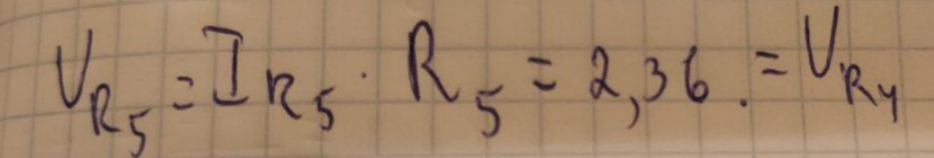 U_{R_5} = I_{R_5} · R_5 = 2,36. = U_{R_4}